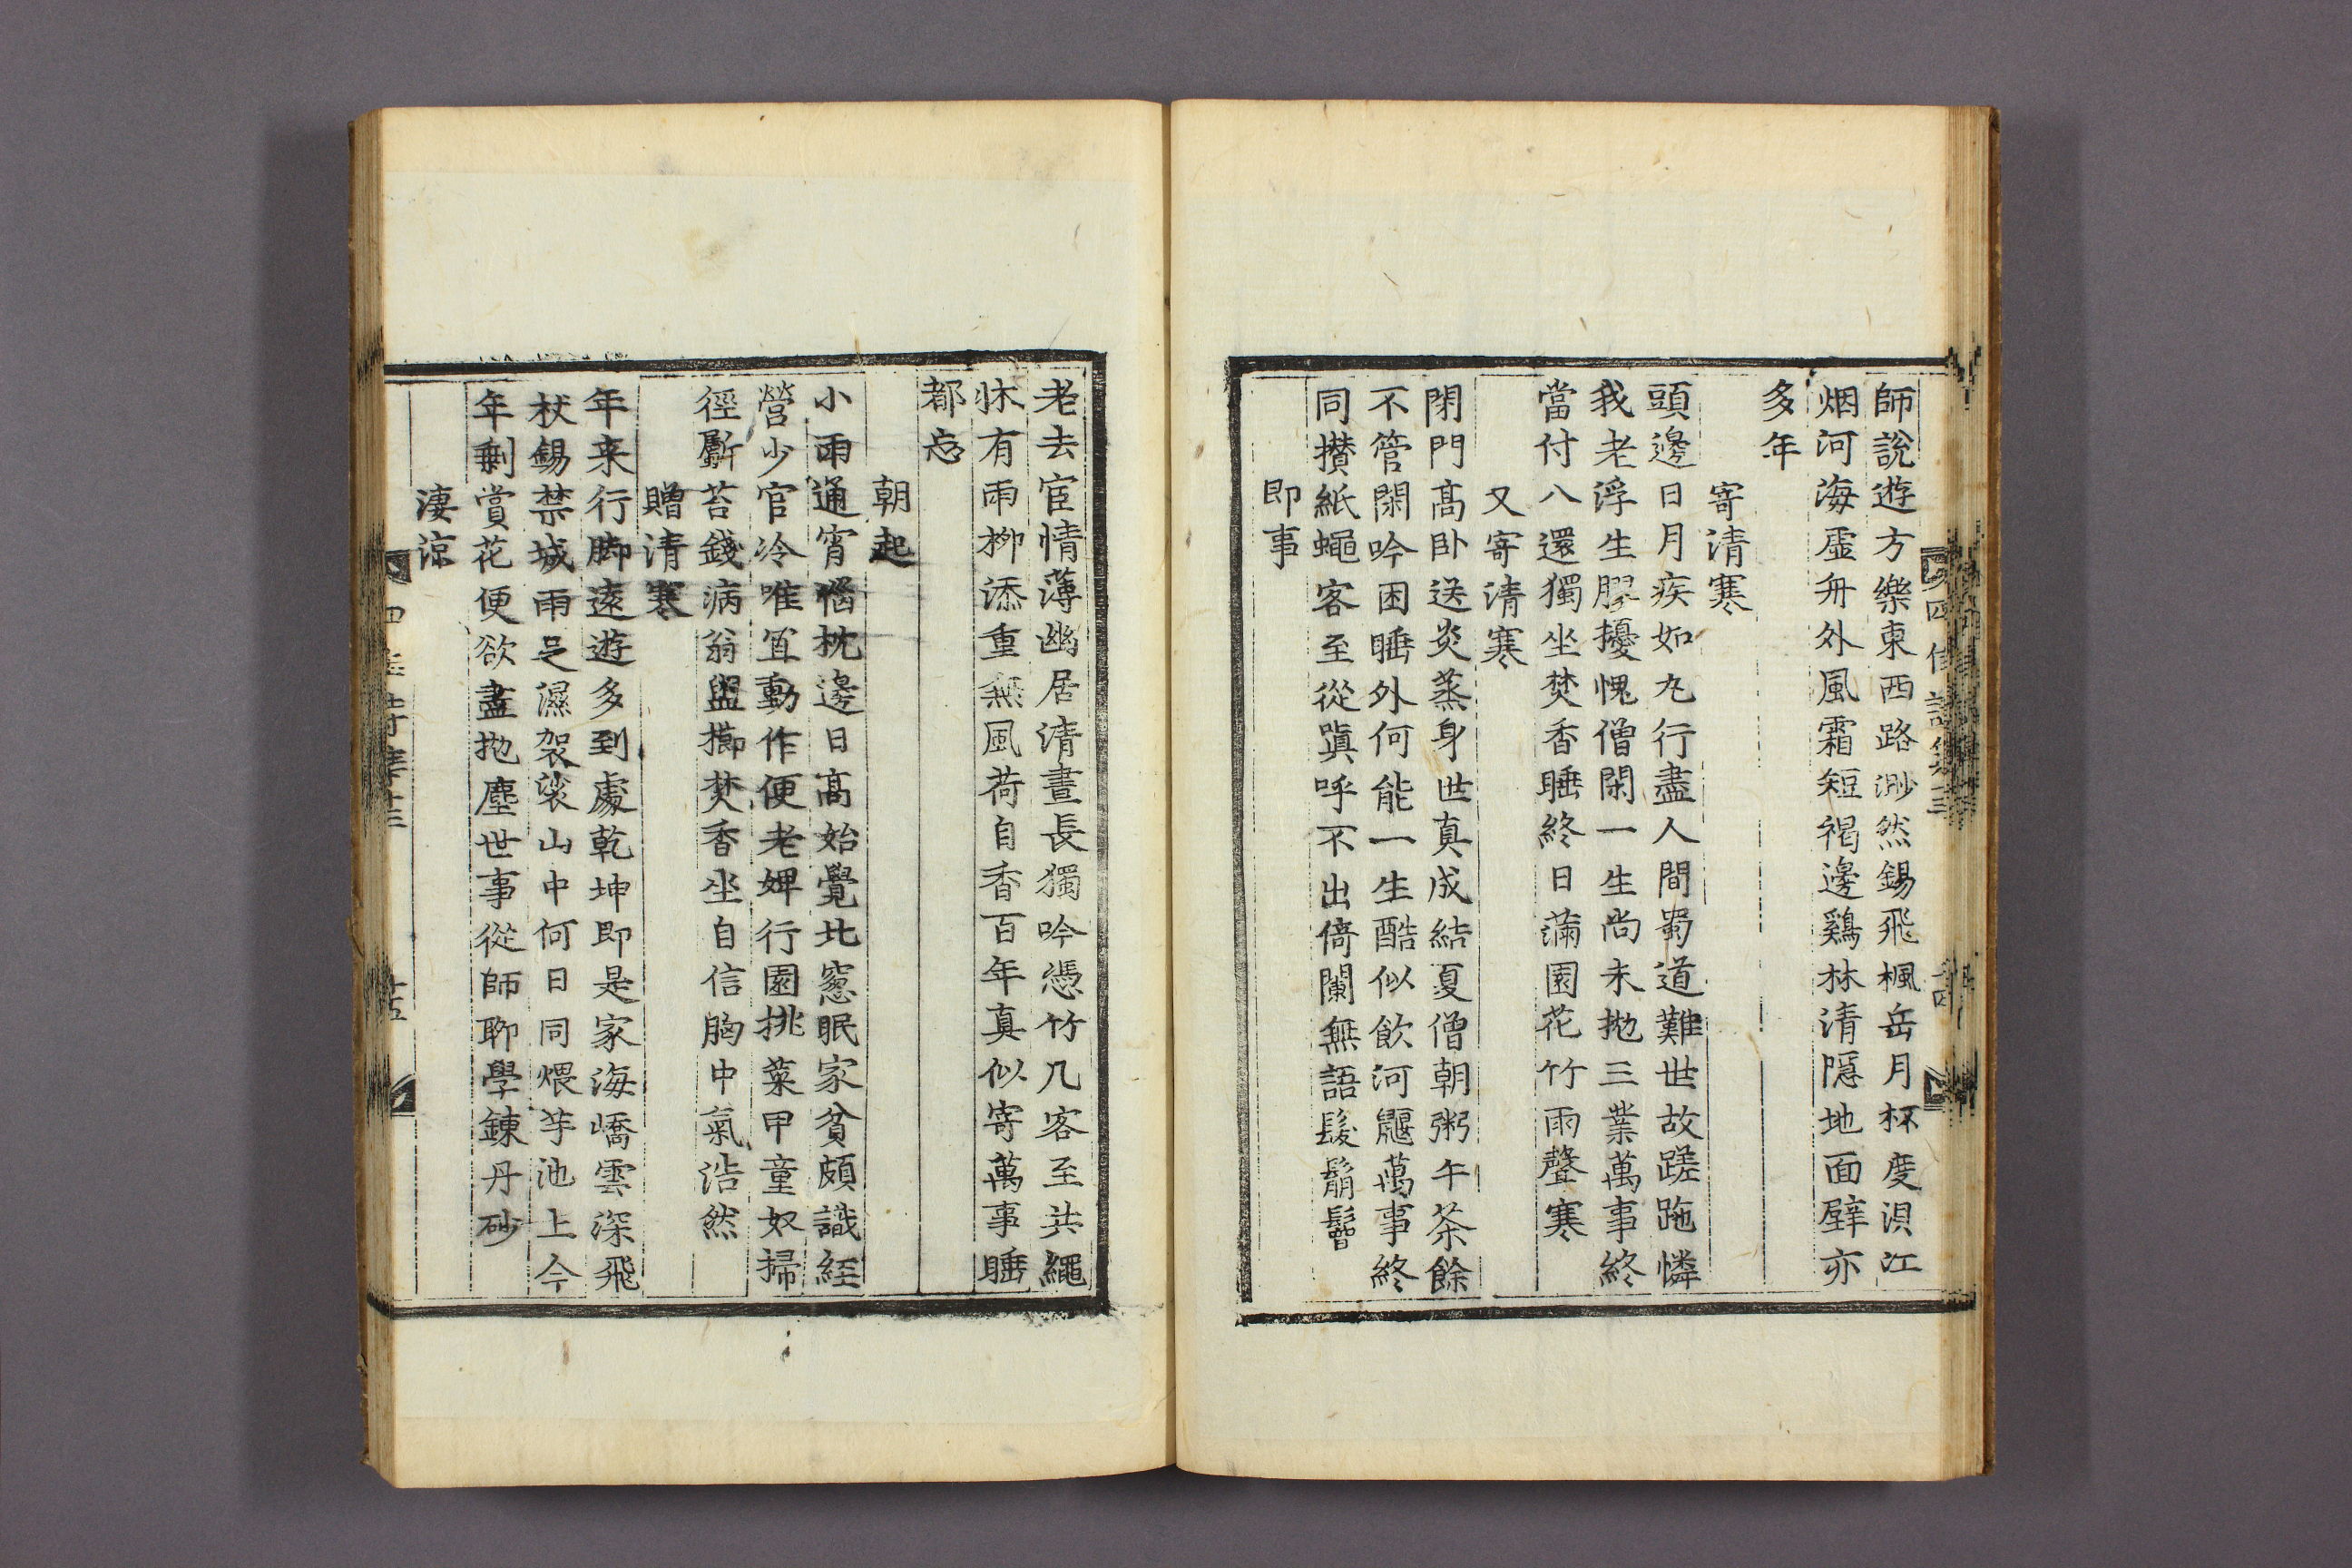 師說遊方樂東西路渺然錫飛楓岳月杯度浿江
烟河海虛舟外風霜短褐邊鷄林清隱地面壁亦
多年
寄清寒
頭邊日月疾如丸行盡人間蜀道難世故蹉跎憐
我老浮生膠擾愧僧閑一生尚未拋三業萬事終
當付八還獨坐焚香睡終日滿園花竹雨聲寒
又寄清寒
閉門高臥送炎蒸身世真成結夏僧朝粥午茶餘
不管閑吟困睡外何能一生酷似飲河鼴萬事終
同攅紙蠅客至從嗔呼不出倚闌無語髮鬅鬙
即事
老去宦情薄幽居清晝長獨吟憑竹几客至共繩
床有雨柳添重無風荷自香百年真似寄萬事睡
都忘
朝起
小雨通宵惱枕邊日高始覺北窓眠家貧頗識経
營少官冷唯冝動作便老婢行園挑菜甲童奴掃
徑斸苔錢病翁盥擳焚香坐自信胸中氣浩然
贈清寒
年来行脚遠遊多到處乾坤即是家海嶠雲深飛
杖錫禁城雨足濕袈裟山中何日同煨芋池上今
年剩賞花便欲盡拋塵世事從師聊學鍊丹砂
淒涼